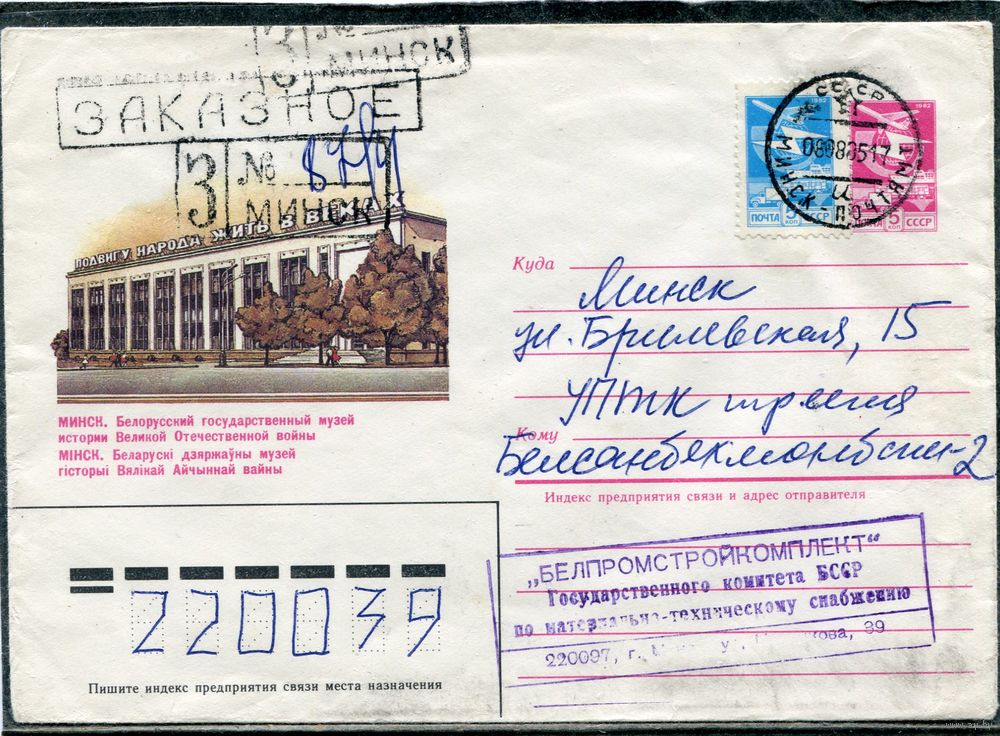 З №
МИНСК
ЗАКАЗНОЕ
З № 87/4
МИНСК
ПОДВИГУ НАРОДА ЖИТЬ В ВЕКАХ
1982
ПОЧТА 5 КОП СССР
1982
5 КОП СССР
СССР
08088517
Ц
МИНСК-ПОЧТАМТ
Куда Минск
ул. Брилевская, 15
УПТК треста
Кому
Белсантехмонтаж-2
МИНСК. Белорусский государственный музей
истории Великой Отечественной войны
МІНСК. Беларускі дзяржаўны музей
гісторыі Вялікай Айчыннай вайны
Индекс предприятия связи и адрес отправителя
„БЕЛПРОМСТРОЙКОМПЛЕКТ“
Государственного комитета БССР
по материально-техническому снабжению
220097, г. 39
220039
Пишите индекс предприятия связи места назначения